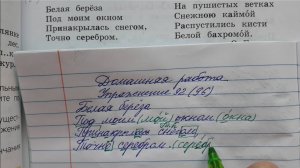 Белая берёза
Под моим окном
Принакрылась снегом,
Точно серебром.
На пушистых ветках
Снежною каймо́й
Распустились кисти
Белой бахромо́й.
Домашняя работа.
Упражнение 92 (96)
Белая берёза
Под моим (мой) окном (окна)
Принакрылась снегом,
Точно серебром. (сереб